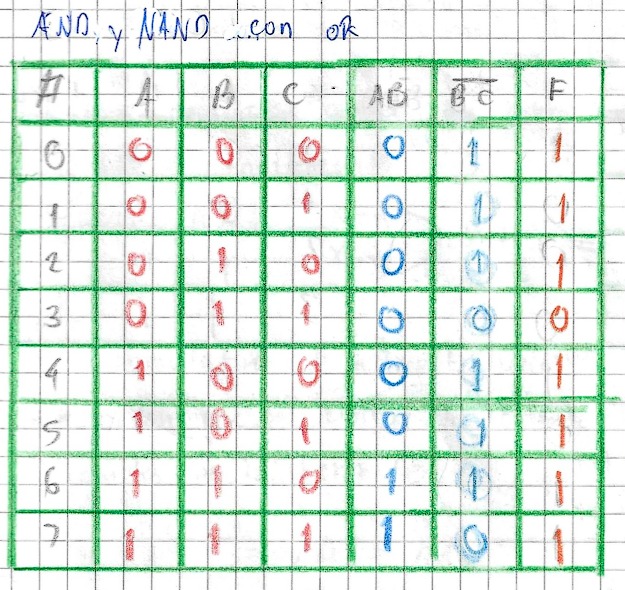 AND, y NAND con OR
# A B C AB B̅C̅ F
0 0 0 0 0 1 1
1 0 0 1 0 1 1
2 0 1 0 0 1 1
3 0 1 1 0 0 0
4 1 0 0 0 1 1
5 1 0 1 0 1 1
6 1 1 0 1 1 1
7 1 1 1 1 0 1